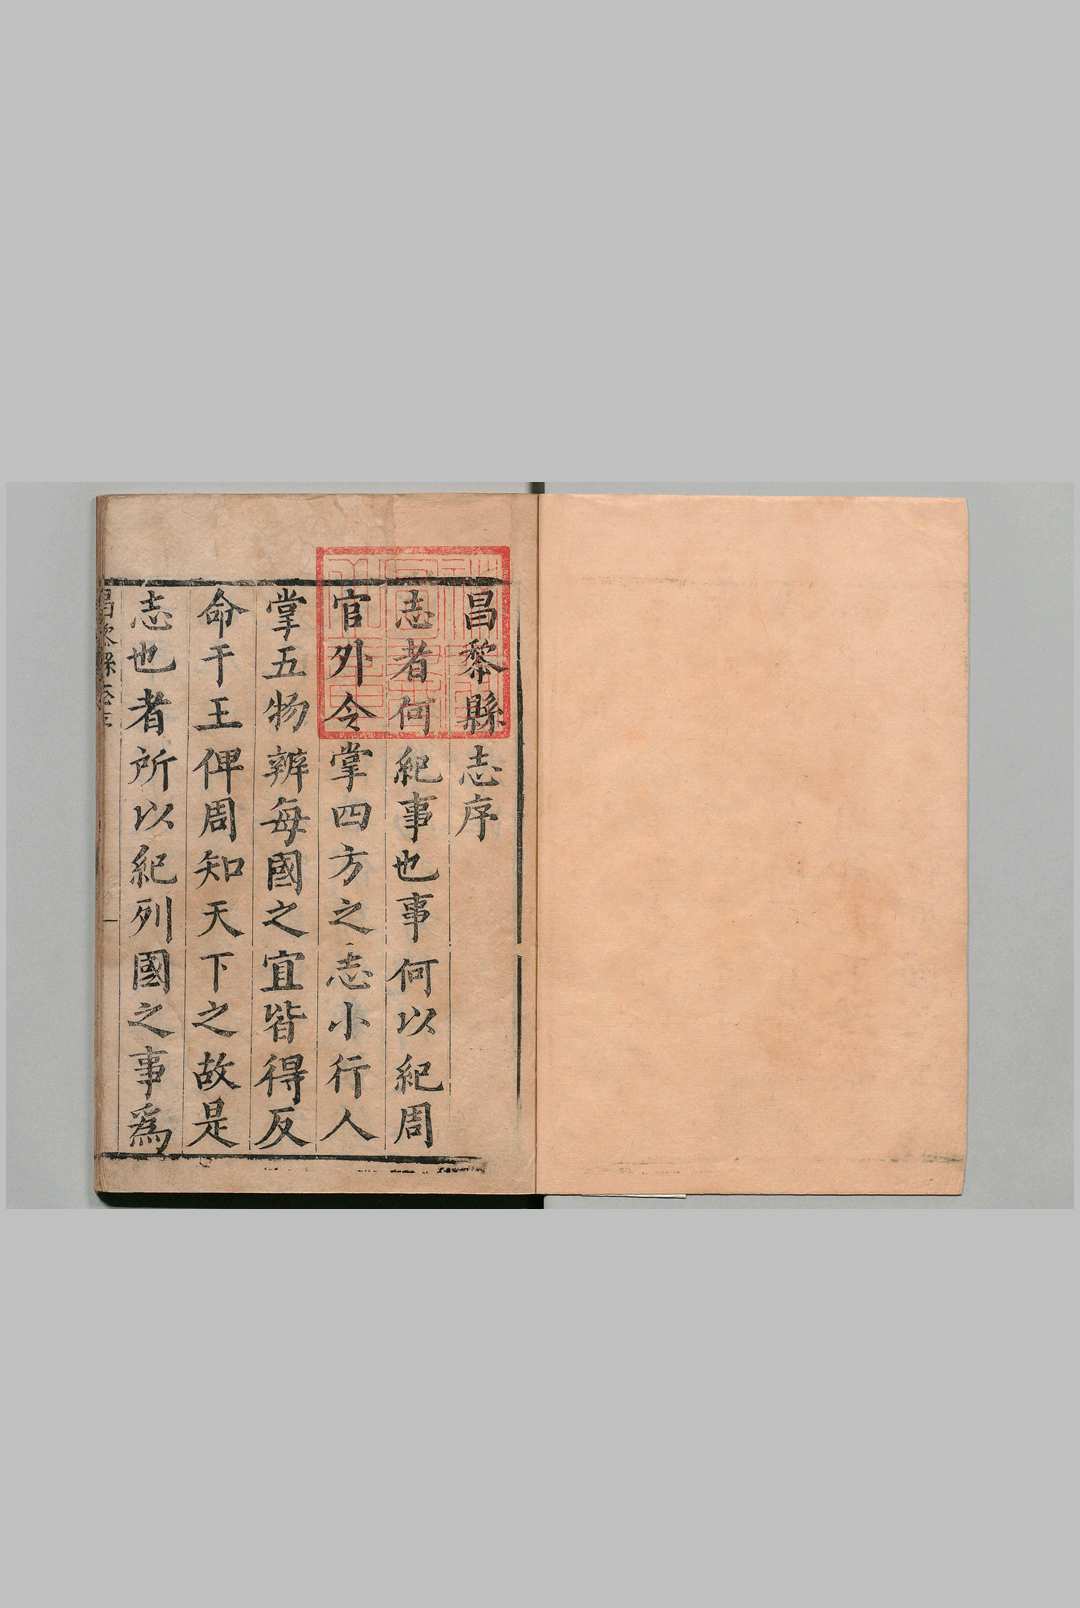 昌黎縣志序
志者何紀事也事何以紀周
官外令掌四方之志小行人
掌五物辨每國之宜皆得反
命于王俾周知天下之故是
志也者所以紀列國之事爲